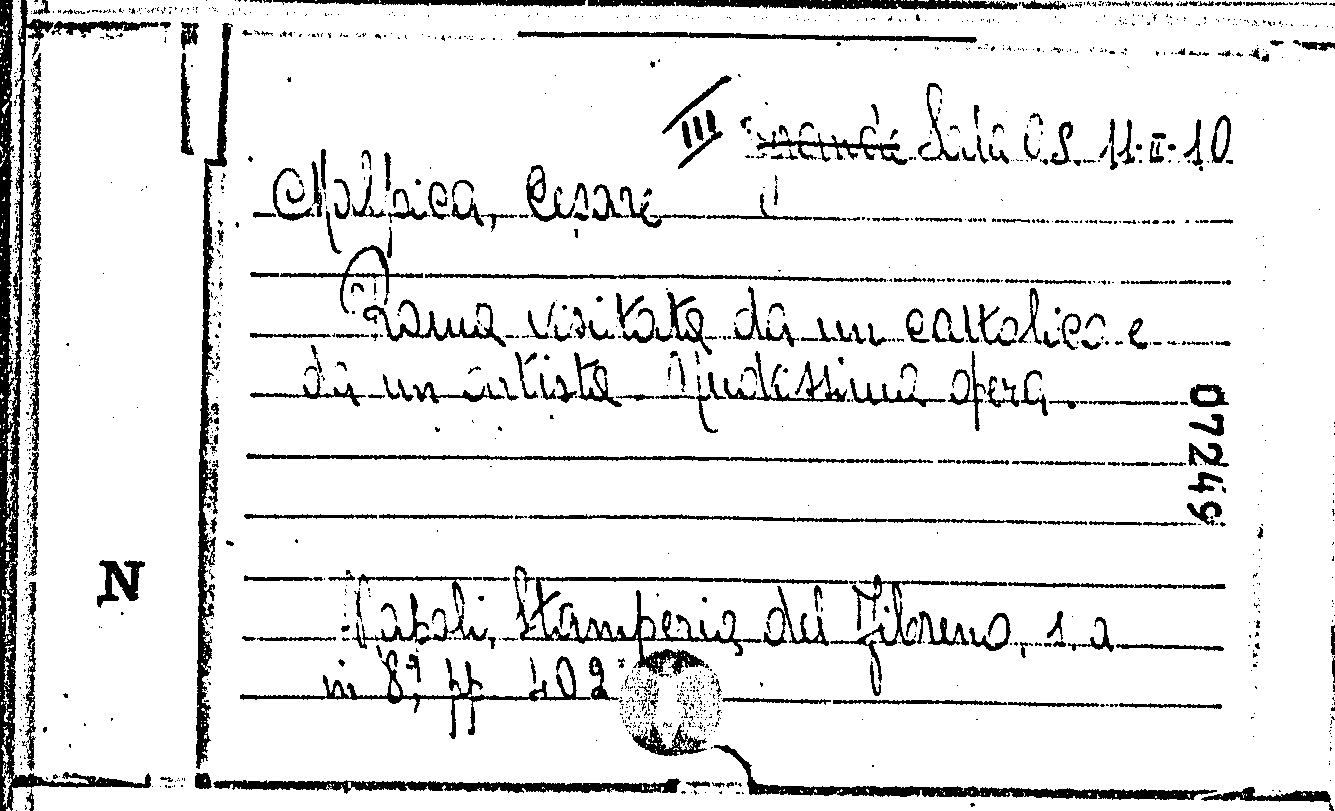 III Sala O.S. 11-II-10
Malpica, Cesare
Roma visitata da un cattolico e
da un artista. opera.
07249
N
Napoli, Stamperia del Fibreno, s. a
in 8º, pp. 402